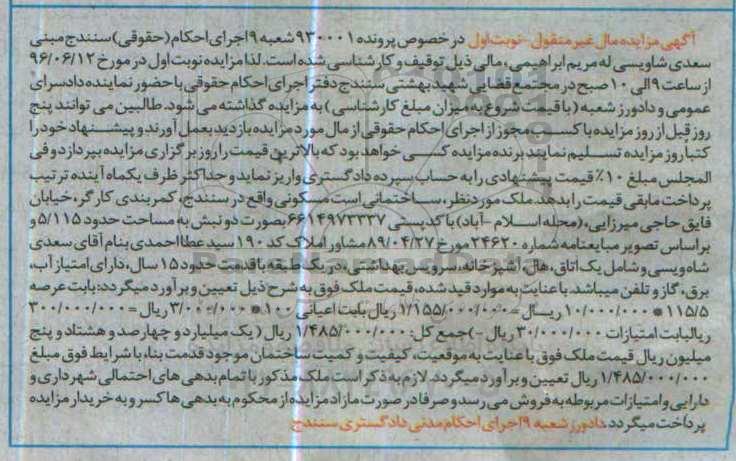 آگهی مزایده مال غیر منقول - نوبت اول در خصوص پرونده ۹۳۰۰۰۱ شعبه ۹ اجرای احکام (حقوقی) سنندج مبنی
سعدی شاویسی له مریم ابراهیمی، مالی ذیل توقیف و کارشناسی شده است. لذا مزایده نوبت اول در مورخ ۹۶/۰۶/۱۲
از ساعت ۹ الی ۱۰ صبح در مجتمع قضایی شهید بهشتی سنندج دفتر اجرای احکام حقوقی با حضور نماینده دادسرای
عمومی و دادورز شعبه (با قیمت شروع به میزان مبلغ کارشناسی) به مزایده گذاشته می شود. طالبین می توانند پنج
روز قبل از روز مزایده با کسب مجوز از اجرای احکام حقوقی از مال مورد مزایده بازدید بعمل آورند و پیشنهاد خود را
کتبا روز مزایده تسلیم نمایند برنده مزایده کسی خواهد بود که بالاترین قیمت را روز برگزاری مزایده بپردازد و فی
المجلس مبلغ ۱۰٪ قیمت پیشنهادی را به حساب سپرده دادگستری واریز نماید و حداکثر ظرف یکماه آینده ترتیب
پرداخت مابقی قیمت را بدهد. ملک مورد نظر، ساختمانی است مسکونی واقع در سنندج، کمربندی کارگر، خیابان
فایق حاجی میرزایی، (محله اسلام -آباد) با کدپستی ۶۶۱۴۹۷۳۳۳۷ بصورت دو نبش به مساحت حدود ۱۱۵/۵ و
بر اساس تصویر مبایعنامه شماره ۲۴۶۲۰ مورخ ۸۹/۰۴/۲۷ مشاور املاک کد ۱۹۰ سید عطا احمدی بنام آقای سعدی
شاه ویسی و شامل یک اتاق، هال، آشپزخانه، سرویس بهداشتی، در یک طبقه با قدمت حدود ۱۵ سال، دارای امتیاز آب،
برق، گاز و تلفن میباشد. با عنایت به موارد قید شده، قیمت ملک فوق به شرح ذیل تعیین و برآورد میگردد: بابت عرصه
۱۱۵/۵ * ۱۰/۰۰۰/۰۰۰ ریال = ۱/۱۵۵/۰۰۰/۰۰۰ ریال بابت اعیانی ۱۰۰ * ۳/۰۰۰/۰۰۰ ریال = ۳۰۰/۰۰۰/۰۰۰
ریالبابت امتیازات ۳۰/۰۰۰/۰۰۰ ریال -) جمع کل: ۱/۴۸۵/۰۰۰/۰۰۰ ریال (یک میلیارد و چهارصد و هشتاد و پنج
میلیون ریال قیمت ملک فوق با عنایت به موقعیت، کیفیت و کمیت ساختمان موجود قدمت بناء با شرایط فوق مبلغ
۱/۴۸۵/۰۰۰/۰۰۰ ریال تعیین و برآورد میگردد. لازم به ذکر است ملک مذکور با تمام بدهی های احتمالی شهرداری و
دارایی و امتیازات مربوطه به فروش می رسد و صرفا در صورت مازاد مزایده از محکوم به بدهی ها کسر و به خریدار مزایده
پرداخت میگردد. دادورز شعبه ۹ اجرای احکام مدنی دادگستری سنندج
ParsNamadData